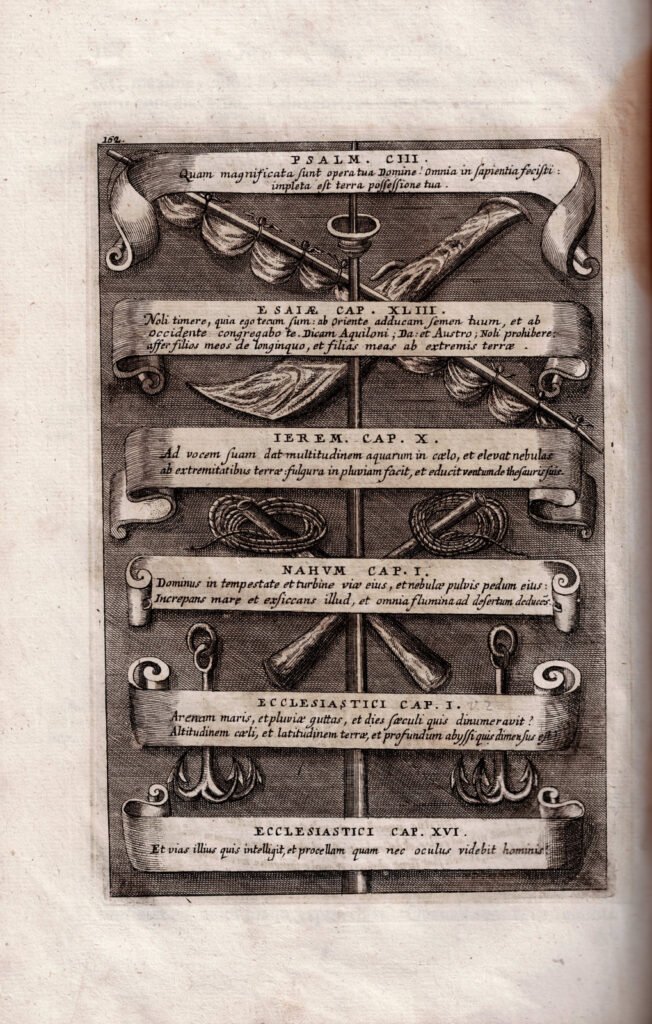 162.
PSALM. CIII.
Quam magnificata sunt opera tua Domine! Omnia in sapientia fecisti:
impleta est terra possessione tua.
ESAIÆ CAP. XLIII.
Noli timere, quia ego tecum sum: ab Oriente adducam semen tuum, et ab
occidente congregabo te. Dicam Aquiloni; Da: et Austro; Noli prohibere:
affer filios meos de longinquo, et filias meas ab extremis terræ.
IEREM. CAP. X.
Ad vocem suam dat multitudinem aquarum in cælo, et elevat nebulas
ab extremitatibus terræ: fulgura in pluviam facit, et educit ventum de thesauris suis.
NAHVM CAP. I.
Dominus in tempestate et turbine viæ eius, et nebulæ pulvis pedum eius:
Increpans mare et exsiccans illud, et omnia flumina ad desertum deducẽs.
ECCLESIASTICI CAP. I.
Arenam maris, et pluviæ guttas, et dies sæculi quis dinumeravit?
Altitudinem cæli, et latitudinem terræ, et profundum abyssi quis dimensus est?
ECCLESIASTICI CAP. XVI.
Et vias illius quis intelligit, et procellam quam nec oculus videbit hominis!